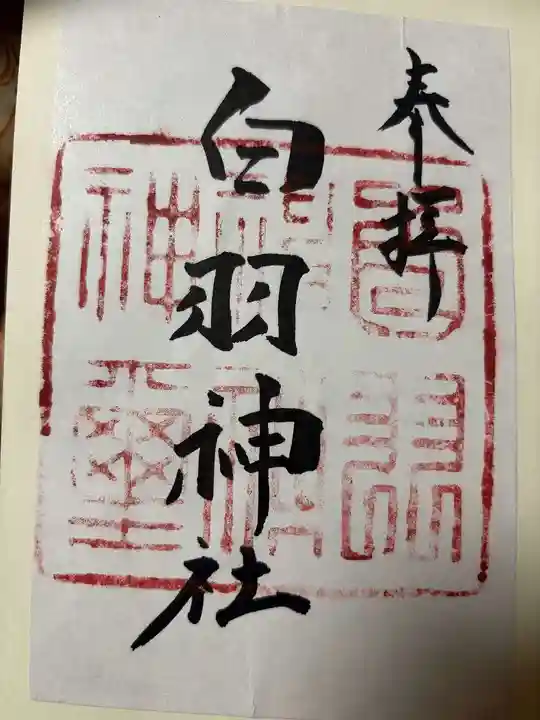 奉拝
白羽神社
白羽神社神璽